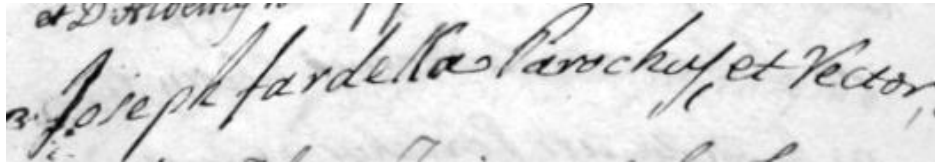 et D
Joseph fardella Parochus, et Rector,